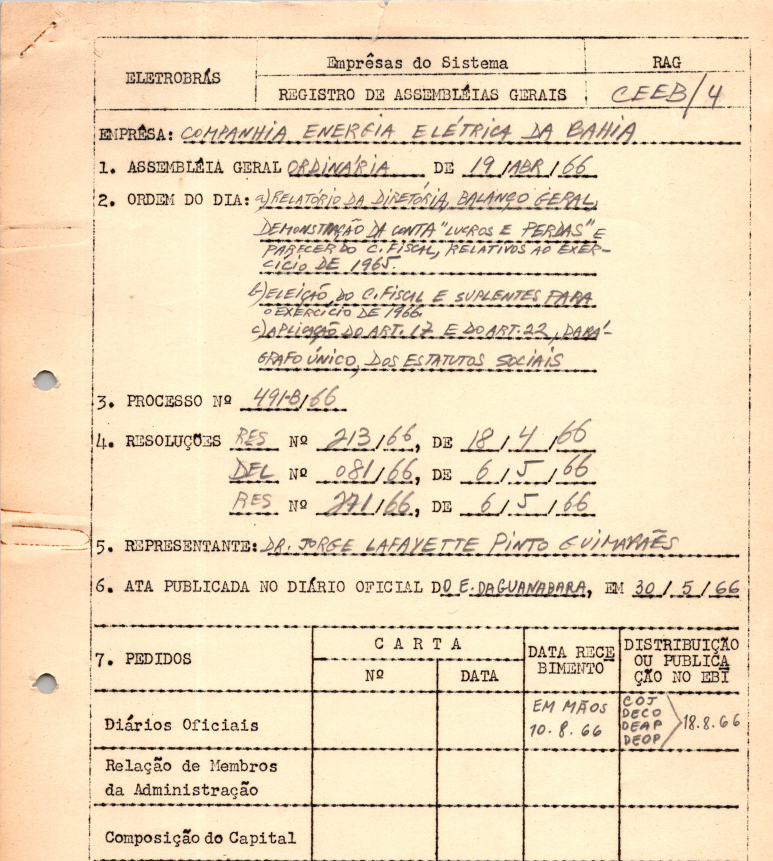 ELETROBRÁS
Emprêsas do Sistema
REGISTRO DE ASSEMBLÉIAS GERAIS
RAG
CEEB/4
EMPRÊSA: COMPANHIA ENERGIA ELÉTRICA DA BAHIA
1. ASSEMBLÉIA GERAL ORDINÁRIA DE 19/ABR/66
2. ORDEM DO DIA: a) RELATÓRIO DA DIRETÓRIA, BALANÇO GERAL,
DEMONSTRAÇÃO DA CONTA "LUCROS E PERDAS" E
PARECER DO C. FISCAL, RELATIVOS AO EXER-
CÍCIO DE 1965.
b) ELEIÇÃO DO C. FISCAL E SUPLENTES PARA
O EXERCÍCIO DE 1966.
c) APLICAÇÃO DO ART. 17 E DO ART. 22, PARÁ-
GRAFO ÚNICO, DOS ESTATUTOS SOCIAIS
3. PROCESSO Nº 491-B/66
4. RESOLUÇÕES RES Nº 213/66, DE 18/4/66
DEL Nº 081/66, DE 6/5/66
RES Nº 271/66, DE 6/5/66
5. REPRESENTANTE: DR. JORGE LAFAYETTE PINTO GUIMARÃES
6. ATA PUBLICADA NO DIÁRIO OFICIAL DO E. DA GUANABARA, EM 30/5/66
7. PEDIDOS
CARTA
Nº
DATA
DATA RECE
BIMENTO
DISTRIBUIÇÃO
OU PUBLICA
ÇÃO NO EBI
Diários Oficiais
EM MÃOS
10.8.66
COJ
DECO
DEAP
DEOP
18.8.66
Relação de Membros
da Administração
Composição do Capital